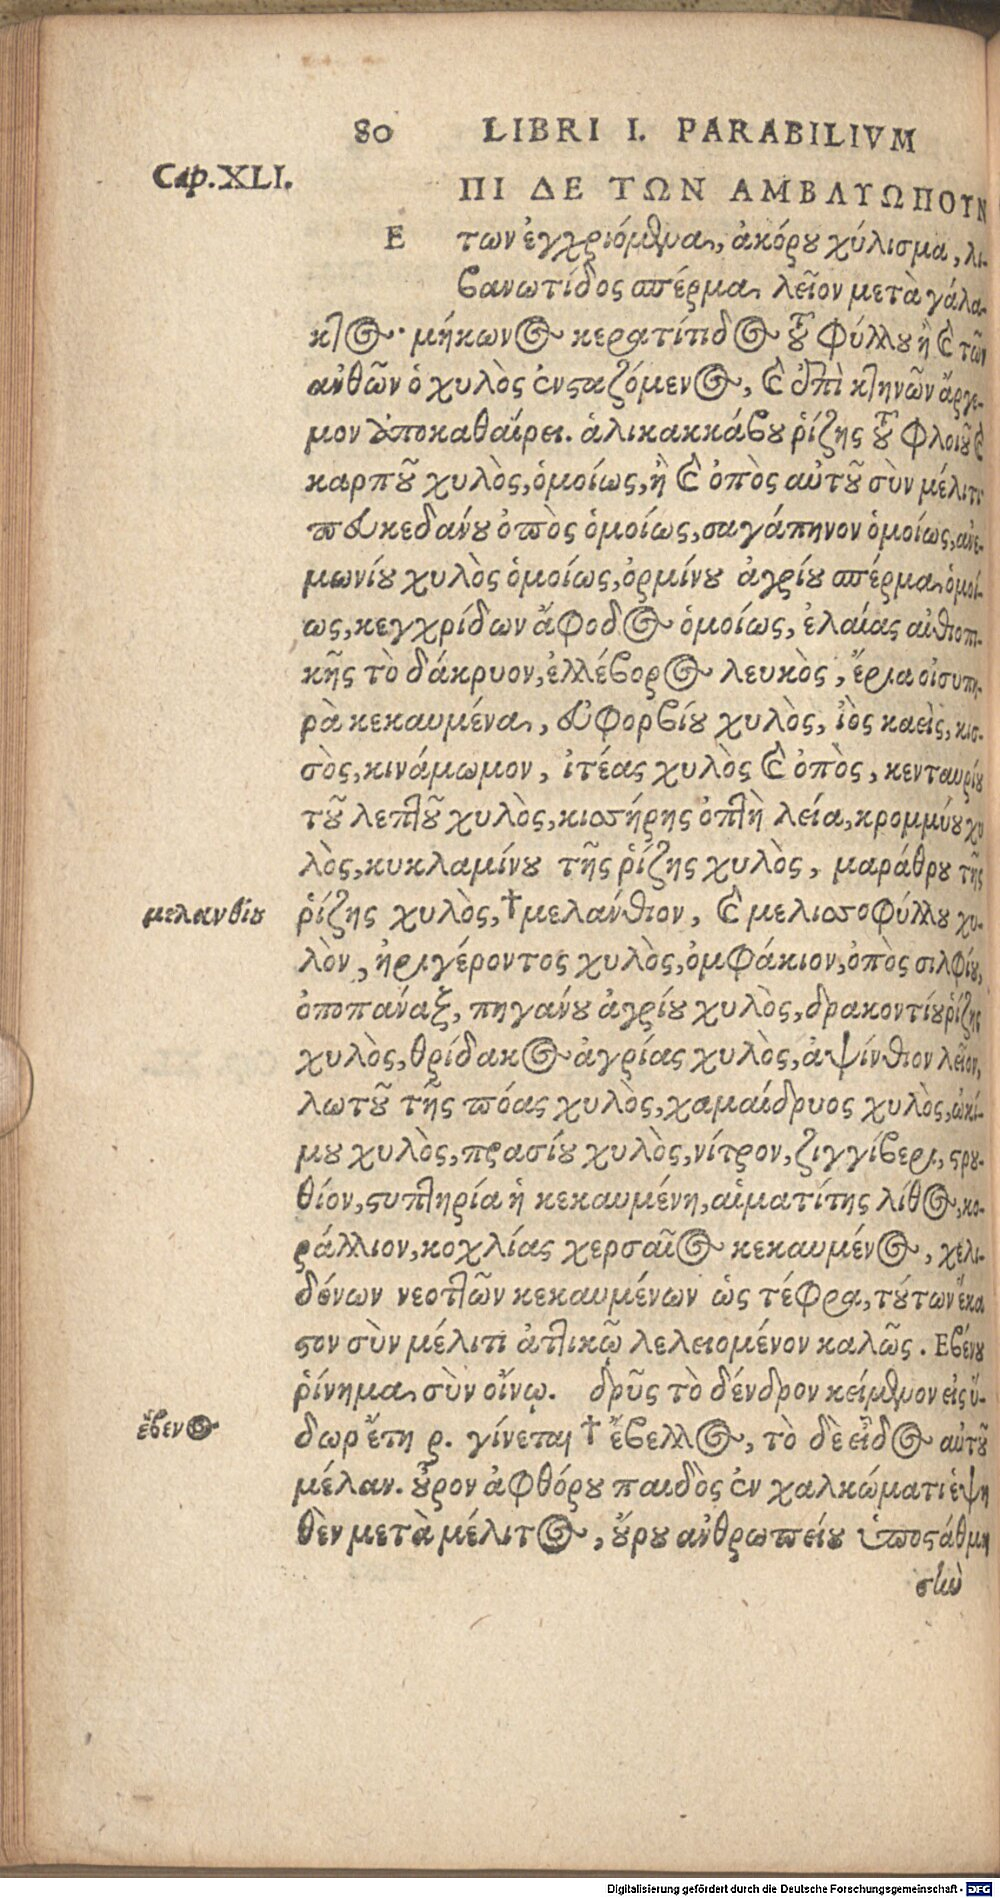 80 LIBRI I. PARABILIVM
Cap. XLI.
ΠΙ ΔΕ ΤΩΝ ΑΜΒΛΥΩΠΟΥΝ
Ε των ἐγχριόμενα, ἀκόρου χύλισμα, λι-
βανωτίδος σπέρμα λεῖον μετὰ γάλα-
κτος· μήκωνος κερατίτιδος τοῦ φύλλου ἢ καὶ τῶν
ανθῶν ὁ χυλὸς ἐνσταζόμενος, καὶ ἐπὶ κτηνῶν ἄργε-
μον ἀποκαθαίρει. ἁλικακκάβου ῥίζης τοῦ φλοιοῦ καὶ
καρποῦ χυλὸς, ὁμοίως, ἢ καὶ ὀπὸς αὐτοῦ σὺν μέλιτι
πευκεδάνου ὀπὸς ὁμοίως, σαγάπηνον ὁμοίως, ανε-
μωνίου χυλὸς ὁμοίως, ὁρμίνου ἀγρίου σπέρμα ὁμοί-
ως, κεγχρίδων ἄφοδος ὁμοίως, ἐλαίας αἰθιοπι-
κῆς τὸ δάκρυον, ἐλλέβορος λευκὸς, ἔρια οἰσυπη-
ρὰ κεκαυμένα, εὐφορβίου χυλὸς, ἰὸς καεὶς, κισ-
σὸς, κινάμωμον, ἰτέας χυλὸς καὶ ὀπὸς, κενταυρίου
τοῦ λεπτοῦ χυλὸς, κισσήρης ὀπτὴ λεία, κρομμύου χυ
λὸς, κυκλαμίνου τῆς ῥίζης χυλὸς, μαράθρου τῆς
μελανθίου
ῥίζης χυλὸς, †μελάνθιον, καὶ μελισσοφύλλου χυ-
λὸν, ἠριγέροντος χυλὸς, ὀμφάκιον, ὀπὸς σιλφίου,
ὀποπάναξ, πηγάνου ἀγρίου χυλὸς, δρακοντίου ῥίζης
χυλὸς, θρίδακος ἀγρίας χυλὸς, ἀψίνθιον λεῖον,
λωτοῦ τῆς πόας χυλὸς, χαμαίδρυος χυλὸς, ὠκί-
μου χυλὸς, πρασίου χυλὸς, νίτρον, ζιγγίβερι, στρου-
θίον, στυπτηρία ἡ κεκαυμένη, αἱματίτης λίθος, κο-
ράλλιον, κοχλίας χερσαῖος κεκαυμένος, χελι-
δόνων νεοττῶν κεκαυμένων ὡς τέφρα, τούτων ἕκα
στον σὺν μέλιτι ἀττικῷ λελειομένον καλῶς. Εβένου
ῥίνημα σὺν οἴνῳ. δρῦς τὸ δένδρον κείμενον εἰς ὕ-
ἔβενος
δωρ ἔτη ρ. γίνεται † ἔβελλος, τὸ δὲ εἶδος αὐτοῦ
μέλαν. οὖρον ἀφθόρου παιδὸς ἐν χαλκώματι ἑψη
θὲν μετὰ μέλιτος, οὔρου ανθρωπείου ὑποστάθμη
σὺν